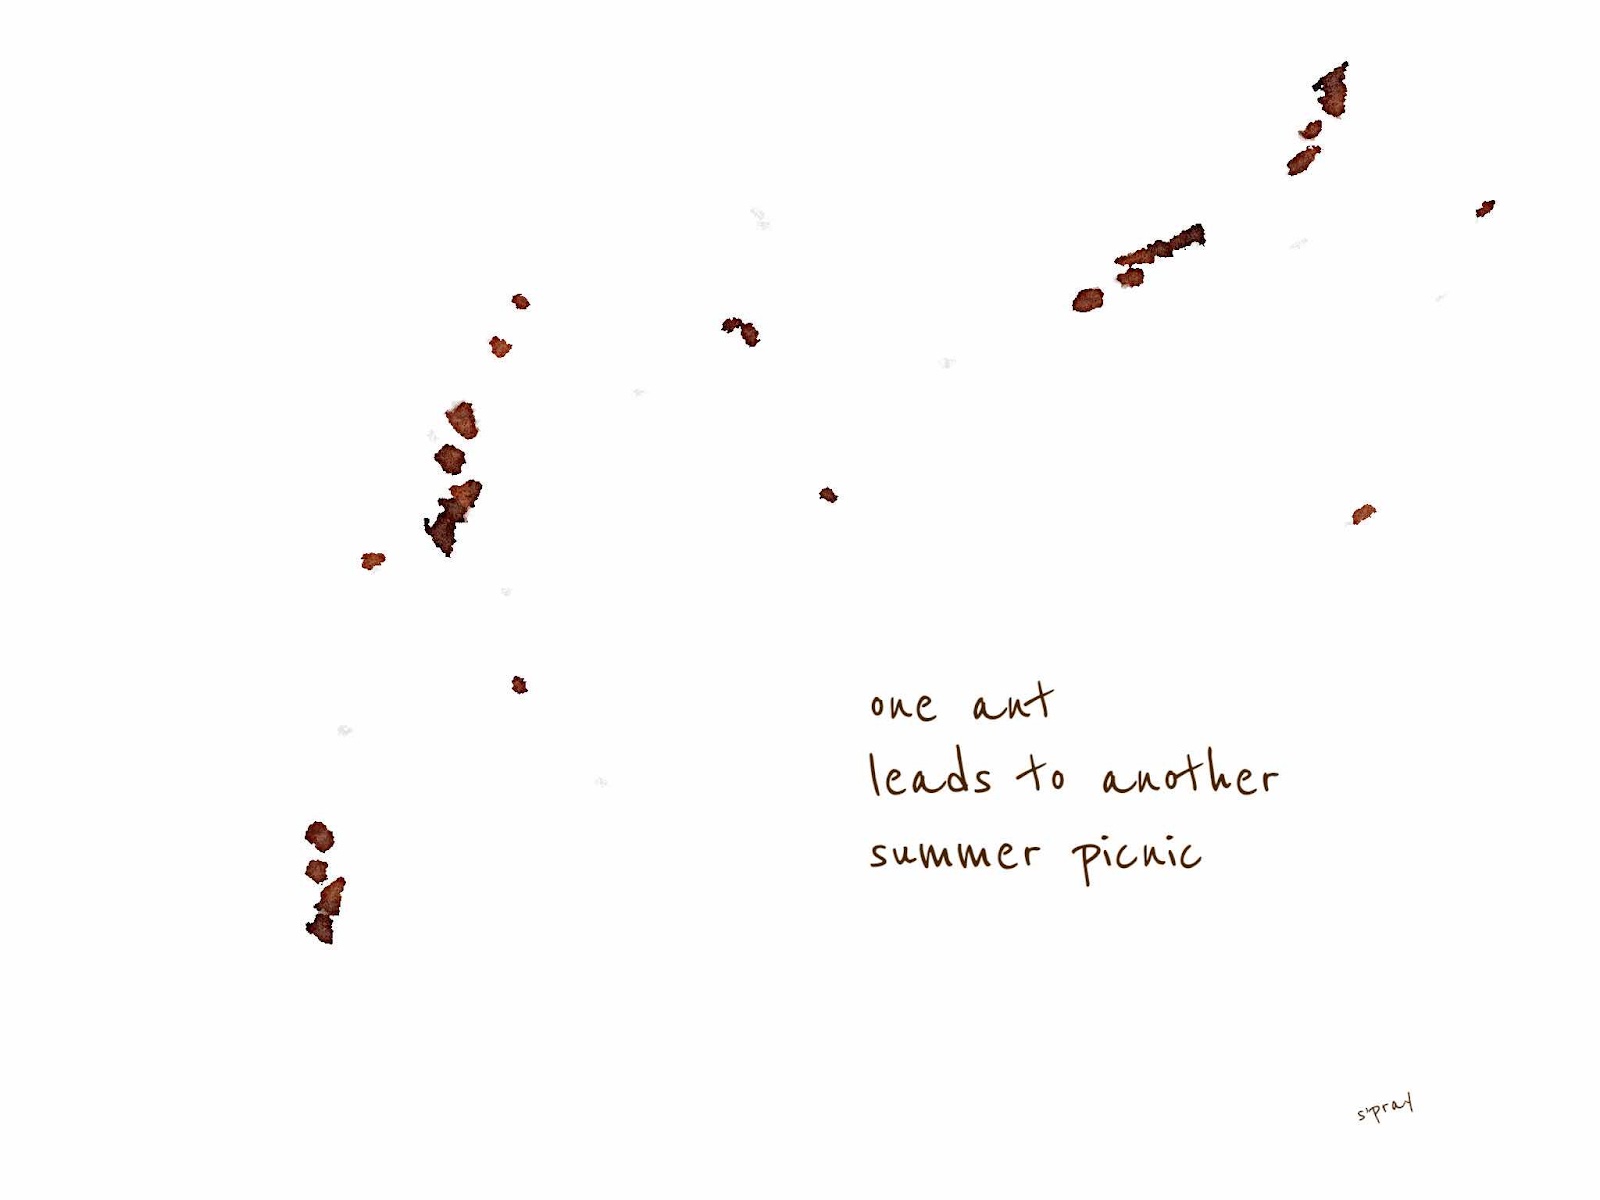 one ant
leads to another
summer picnic